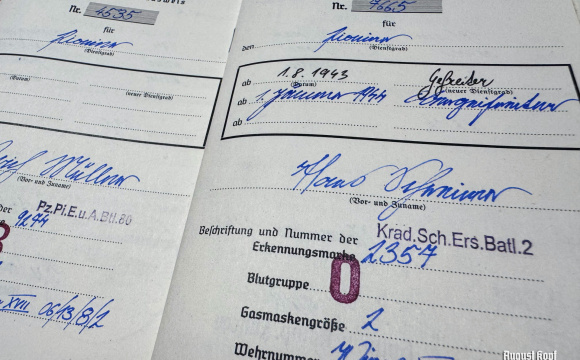 Nr. 4535
für
Pionier
(Dienstgrad)
(Datum)
(neuer Dienstgrad)
Müller
(Vor- und Zuname)
der Pz.Pi.E.u.A.Btl.80
9274
XVII 06/13/8/2
Nr. 7665
für
den Pionier
(Dienstgrad)
ab 1.8.1943 Gefreiter
(Datum) (neuer Dienstgrad)
ab 1. Januar 1944
ab
Hans
(Vor- und Zuname)
Beschriftung und Nummer der Krad.Sch.Ers.Batl.2
Erkennungsmarke 2357
Blutgruppe 0
Gasmaskengröße 2
Wehrnummer
August Kopf